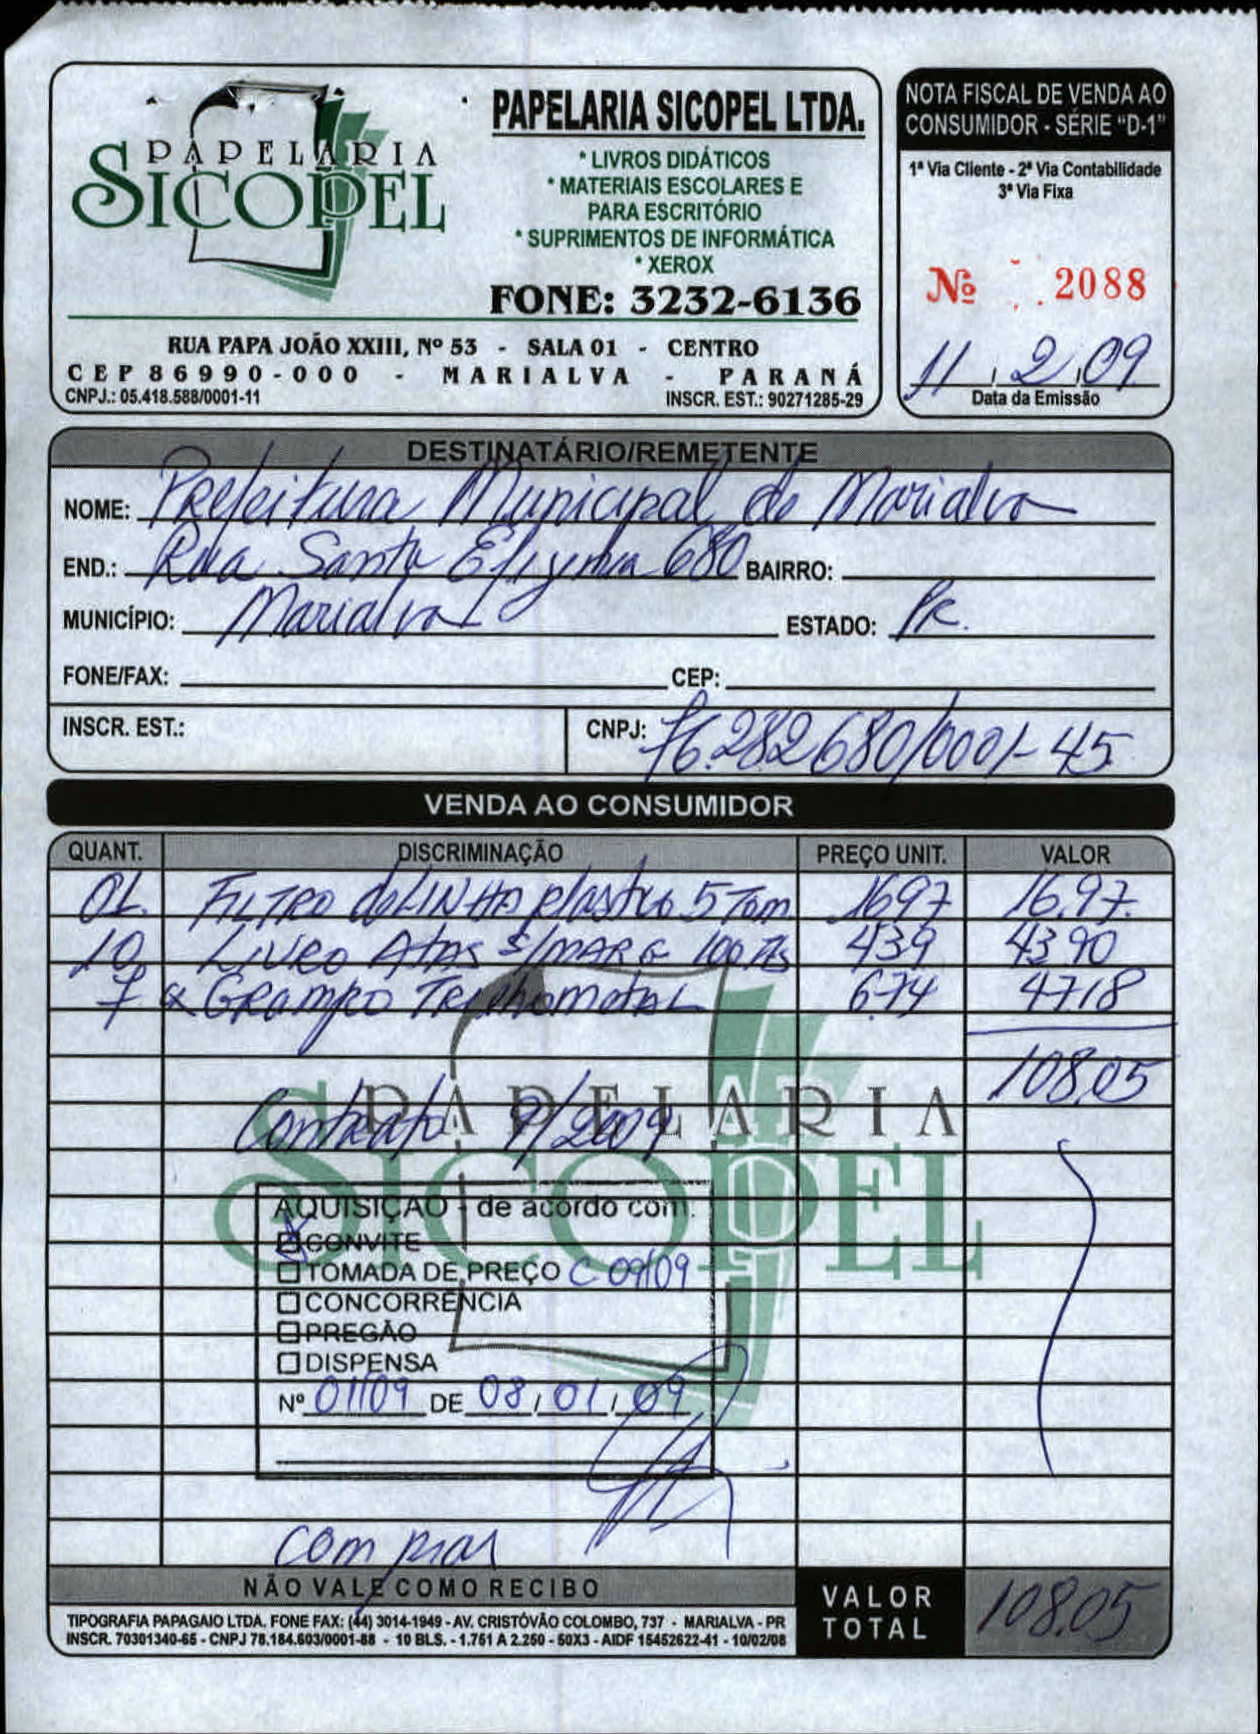 PAPELARIA
SICOPEL
PAPELARIA SICOPEL LTDA.
* LIVROS DIDÁTICOS
* MATERIAIS ESCOLARES E
PARA ESCRITÓRIO
* SUPRIMENTOS DE INFORMÁTICA
* XEROX
FONE: 3232-6136
RUA PAPA JOÃO XXIII, Nº 53 - SALA 01 - CENTRO
CEP 86990-000 - MARIALVA - PARANÁ
CNPJ.: 05.418.588/0001-11 INSCR. EST.: 90271285-29
NOTA FISCAL DE VENDA AO
CONSUMIDOR - SÉRIE "D-1"
1ª Via Cliente - 2ª Via Contabilidade
3ª Via Fixa
Nº 2088
11, 2, 09
Data da Emissão
DESTINATÁRIO/REMETENTE
NOME: Prefeitura Municipal de Marialva
END.: Rua Santa Efigenia 680 BAIRRO:
MUNICÍPIO: Marialva ESTADO: Pr.
FONE/FAX: CEP:
INSCR. EST.: CNPJ: 76.282680/0001-45
VENDA AO CONSUMIDOR
QUANT. DISCRIMINAÇÃO PREÇO UNIT. VALOR
01. FILTRO de LINHA plastico 5 Tom 1697 16.97.
10 LIVRO ATAS S/MARG 100 Fls 439 43.90
7 GRAMPO TRILHO METAL 674 4718
108,05
Contrato 9/2009
PAPELARIA
SICOPEL
AQUISIÇÃO - de acordo com:
CONVITE
TOMADA DE PREÇO C 09/09
CONCORRÊNCIA
PREGÃO
DISPENSA
Nº 01109 DE 08, 01, 09
compras
NÃO VALE COMO RECIBO
VALOR TOTAL 108.05
TIPOGRAFIA PAPAGAIO LTDA. FONE FAX: (44) 3014-1949 - AV. CRISTÓVÃO COLOMBO, 737 - MARIALVA - PR
INSCR. 70301340-65 - CNPJ 78.184.603/0001-88 - 10 BLS. - 1.751 A 2.250 - 50X3 - AIDF 15452622-41 - 10/02/08